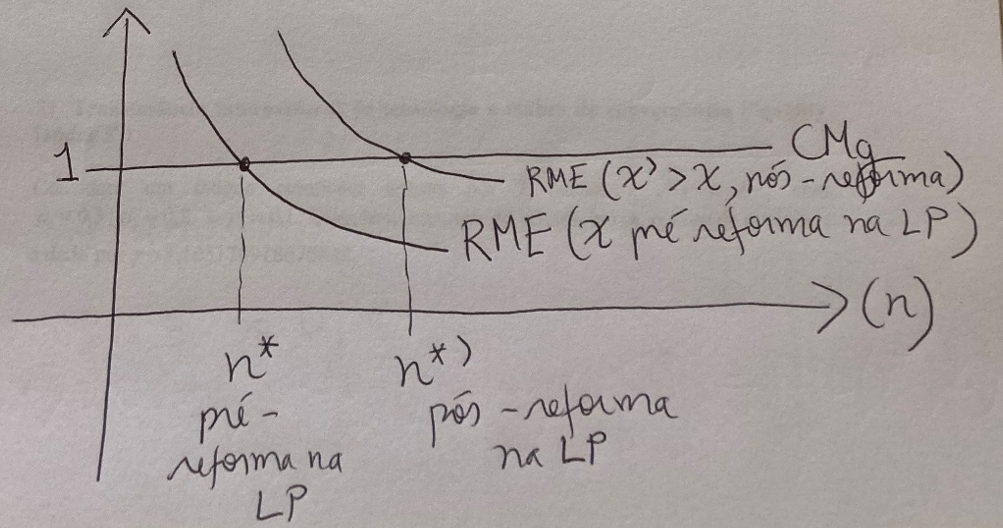 1
CMg
RME (χ' > χ, pós-reforma)
RME (χ pré reforma na LP)
(n)
n*
pré-
reforma na
LP
n*'
pós-reforma
na LP